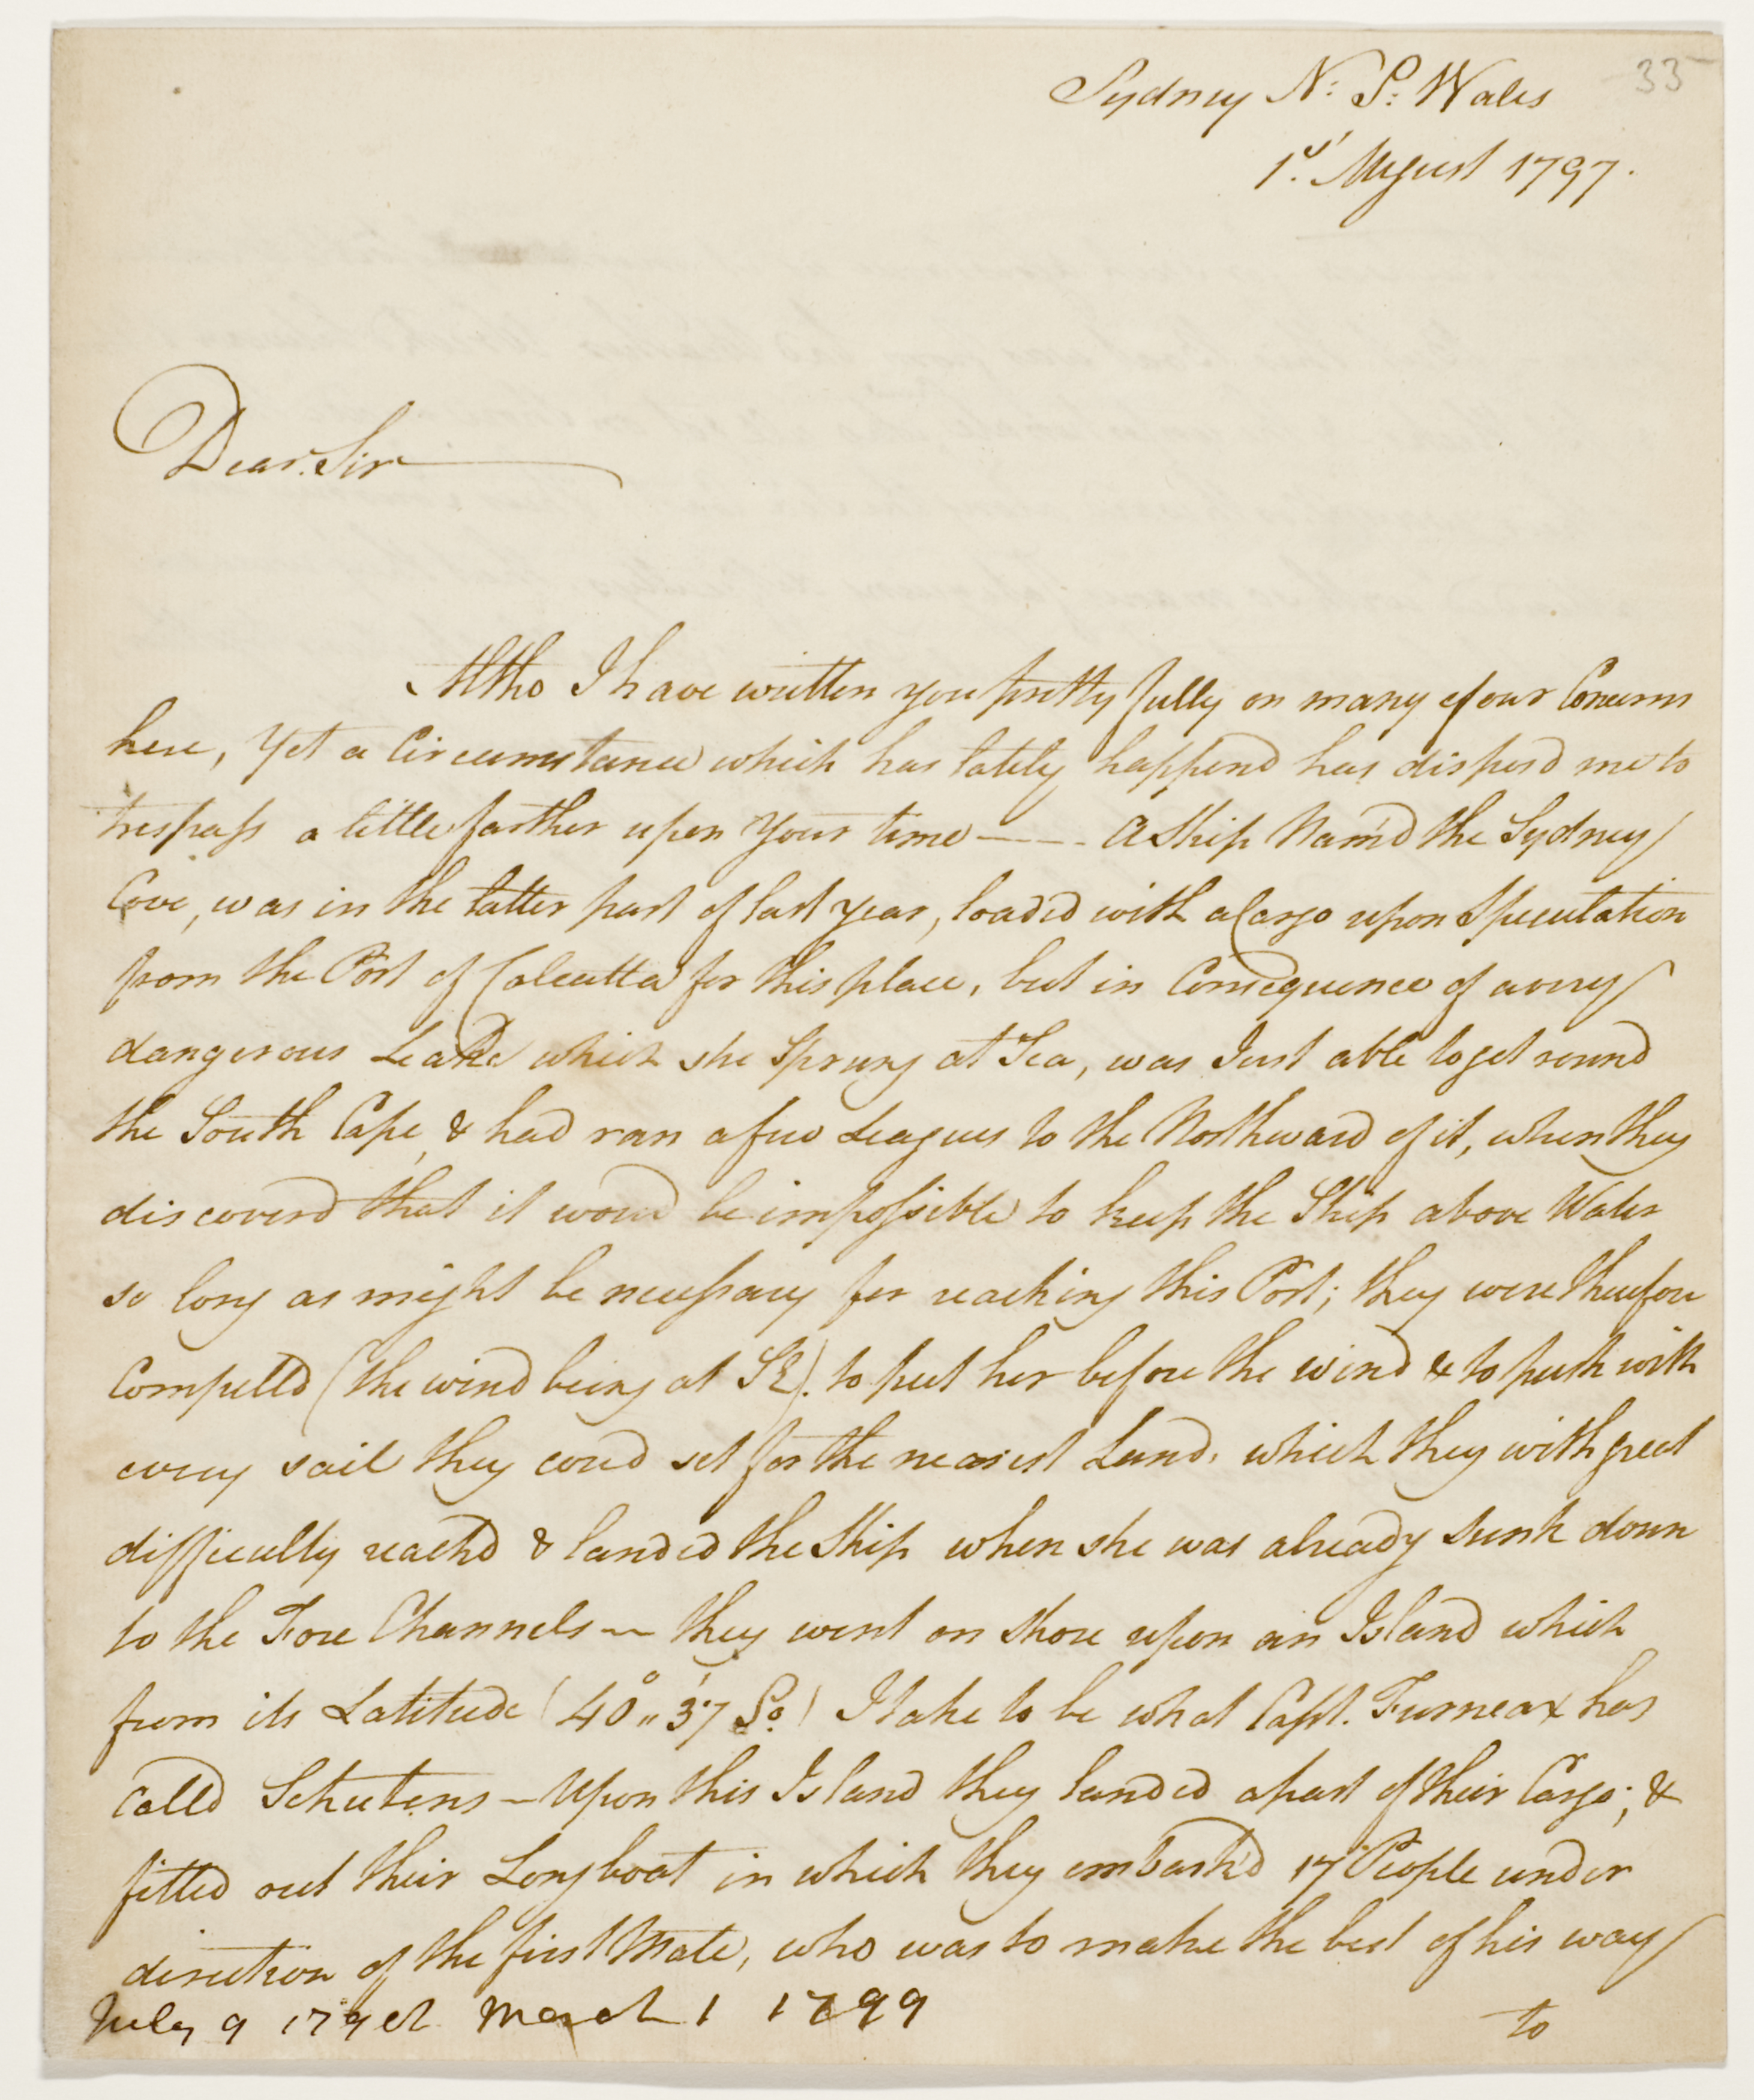 33
Sydney N: S: Wales
1st. August 1797.
Dear Sir
Altho I have written you pretty fully on many of our Concerns
here, Yet a Circumstance which has lately happend has disposd me to
trespass a little farther upon Your time — A Ship Nam'd the Sydney
Cove, was in the latter part of last year, loaded with a Cargo upon Speculation
from the Port of Calcutta for this place, but in Consequence of a very
dangerous Leake which she Sprung at Sea, was Just able to get round
the South Cape, & had ran a few Leagues to the Northward of it, when they
discoverd that it woud be impossible to keep the Ship above Water
so long as might be necessary for reaching this Port; they were therefore
Compelld (the wind being at SE). to put her before the wind & to push with
every sail they coud set for the nearest Land, which they with great
difficulty reachd & landed the Ship when she was already sunk down
to the Fore Channels — they went on shore upon an Island which
from its Latitude (40°" 37' So.) I take to be what Capt. Furneax has
Calld Schutens — Upon this Island they landed a part of their Cargo; &
fitted out their Longboat in which they embark'd 17 People under
direction of the first Mate, who was to make the best of his way
to
July 9 179 March 1 1799